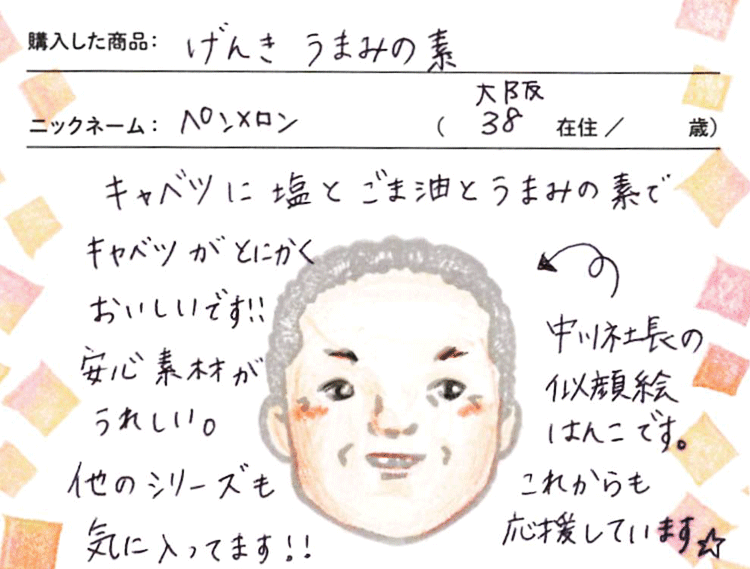 購入した商品: げんき うまみの素
大阪
ニックネーム: ペンメロン ( 38 在住/ 歳)
キャベツに塩とごま油とうまみの素で
キャベツがとにかく
おいしいです!!
安心素材が
うれしい。
他のシリーズも
気に入ってます!!
中川社長の
似顔絵
はんこです。
これからも
応援しています☆